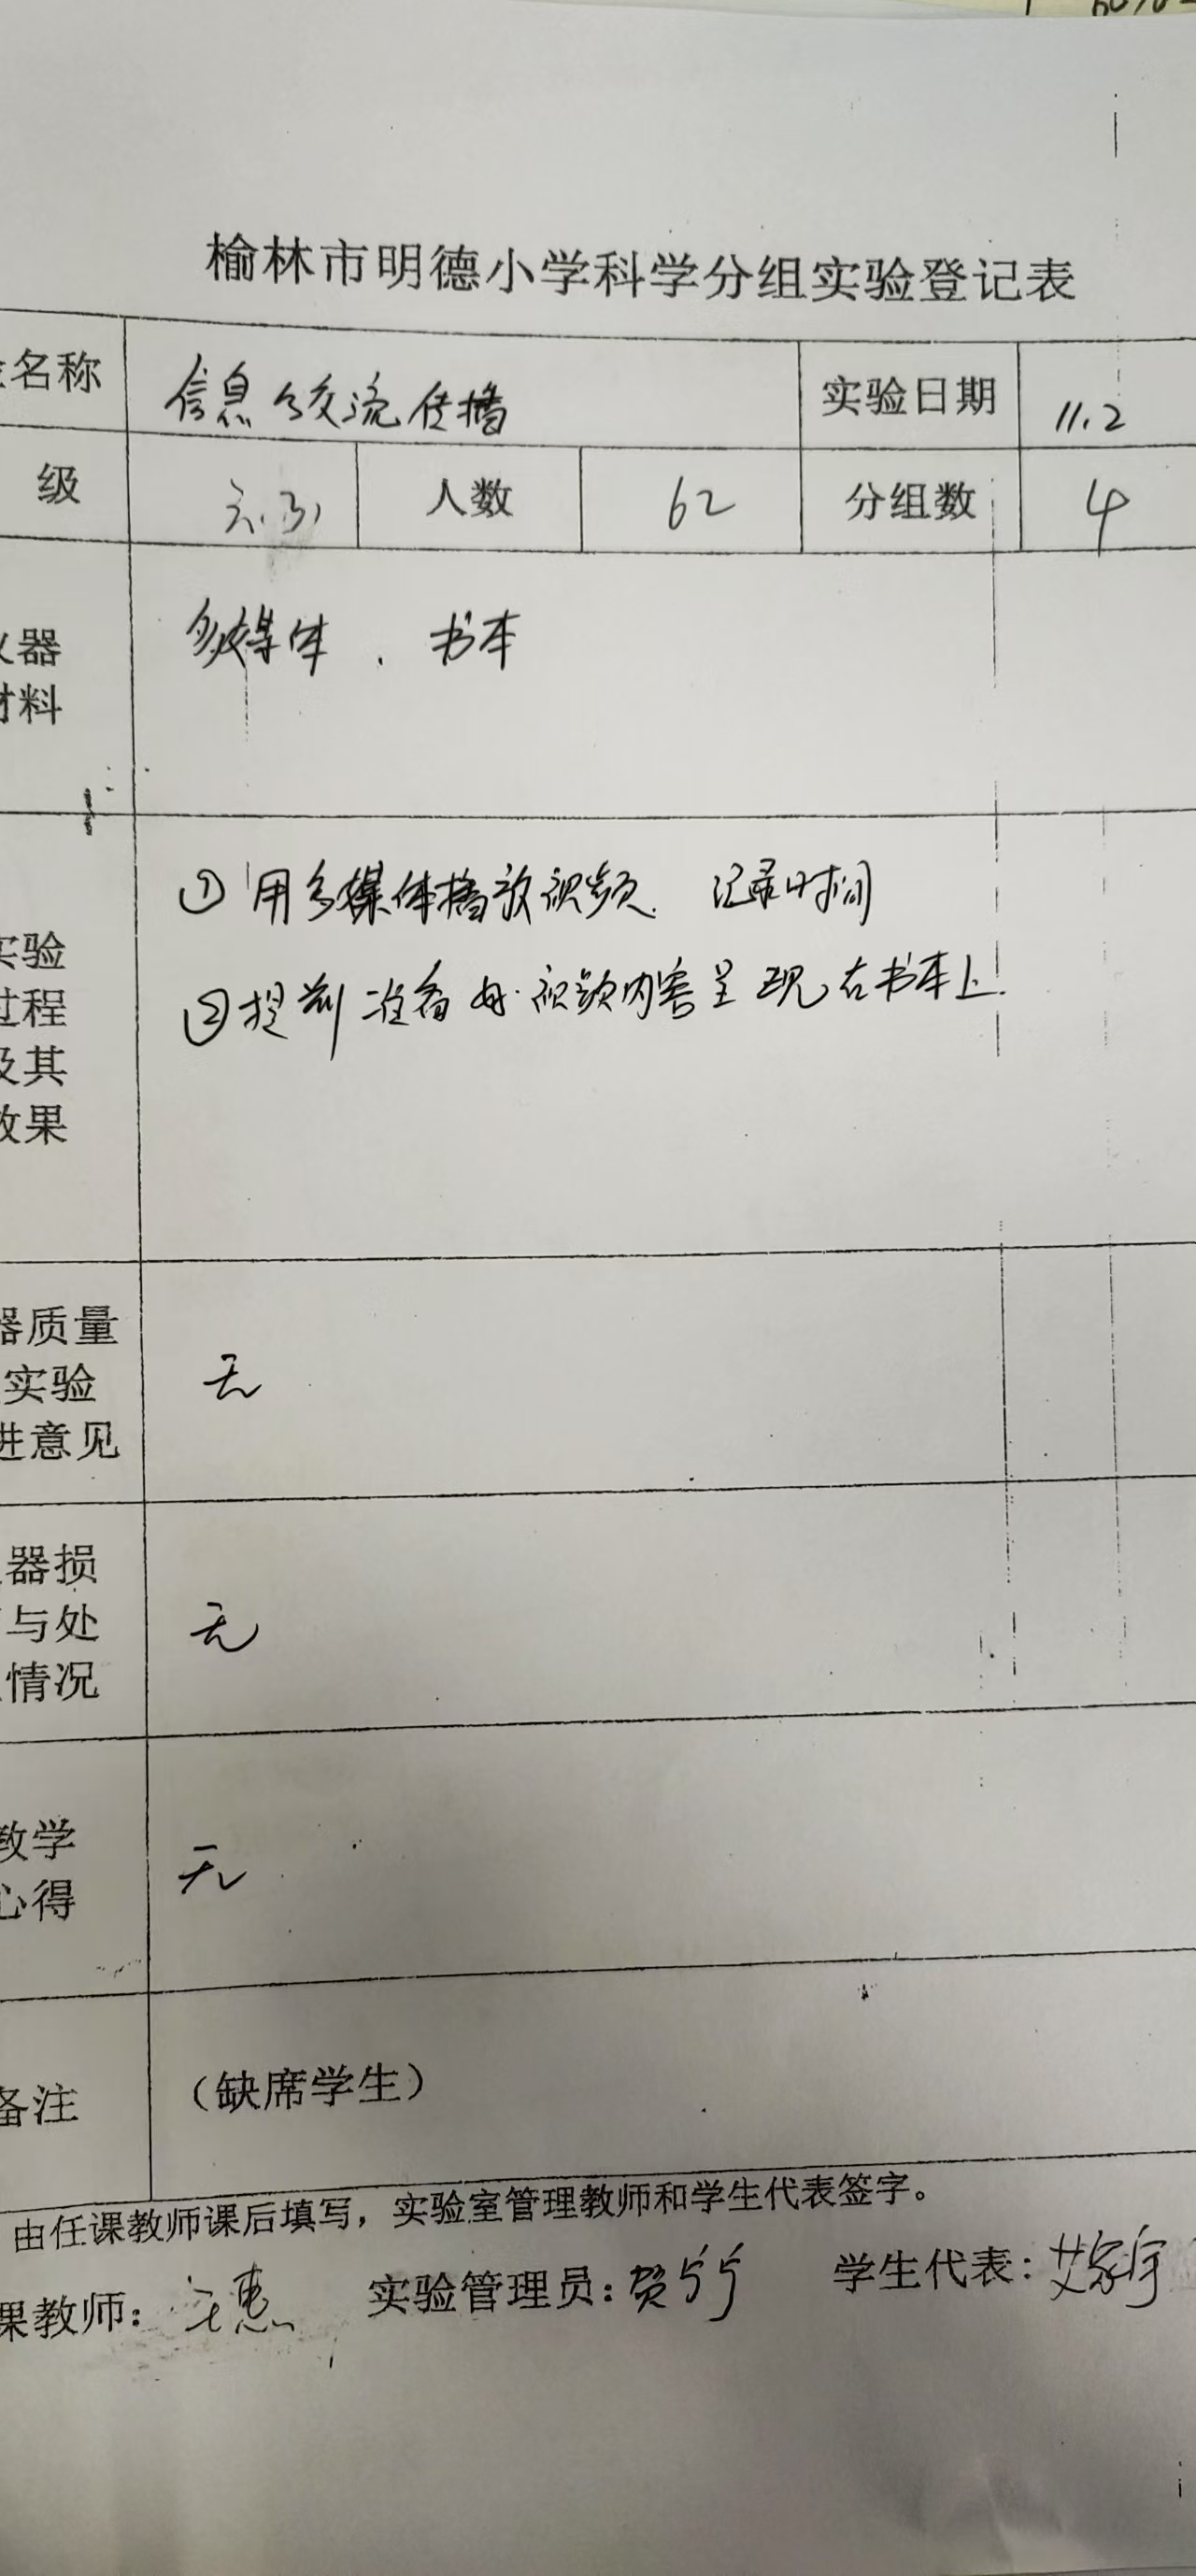 榆林市明德小学科学分组实验登记表
名称 信息 交流传播 实验日期 11.2
级 六.3 人数 62 分组数 4
器 多媒体 . 书本
材料
① 用多媒体播放视频. 记录时间
实验
②提前准备好.视频内容呈现在书本上.
过程
及其
效果
器质量
实验 无
进意见
器损
与处 无
情况
教学 无
心得
备注 (缺席学生)
由任课教师课后填写，实验室管理教师和学生代表签字。
课教师: 惠 实验管理员: 贺 学生代表: 艾家宇